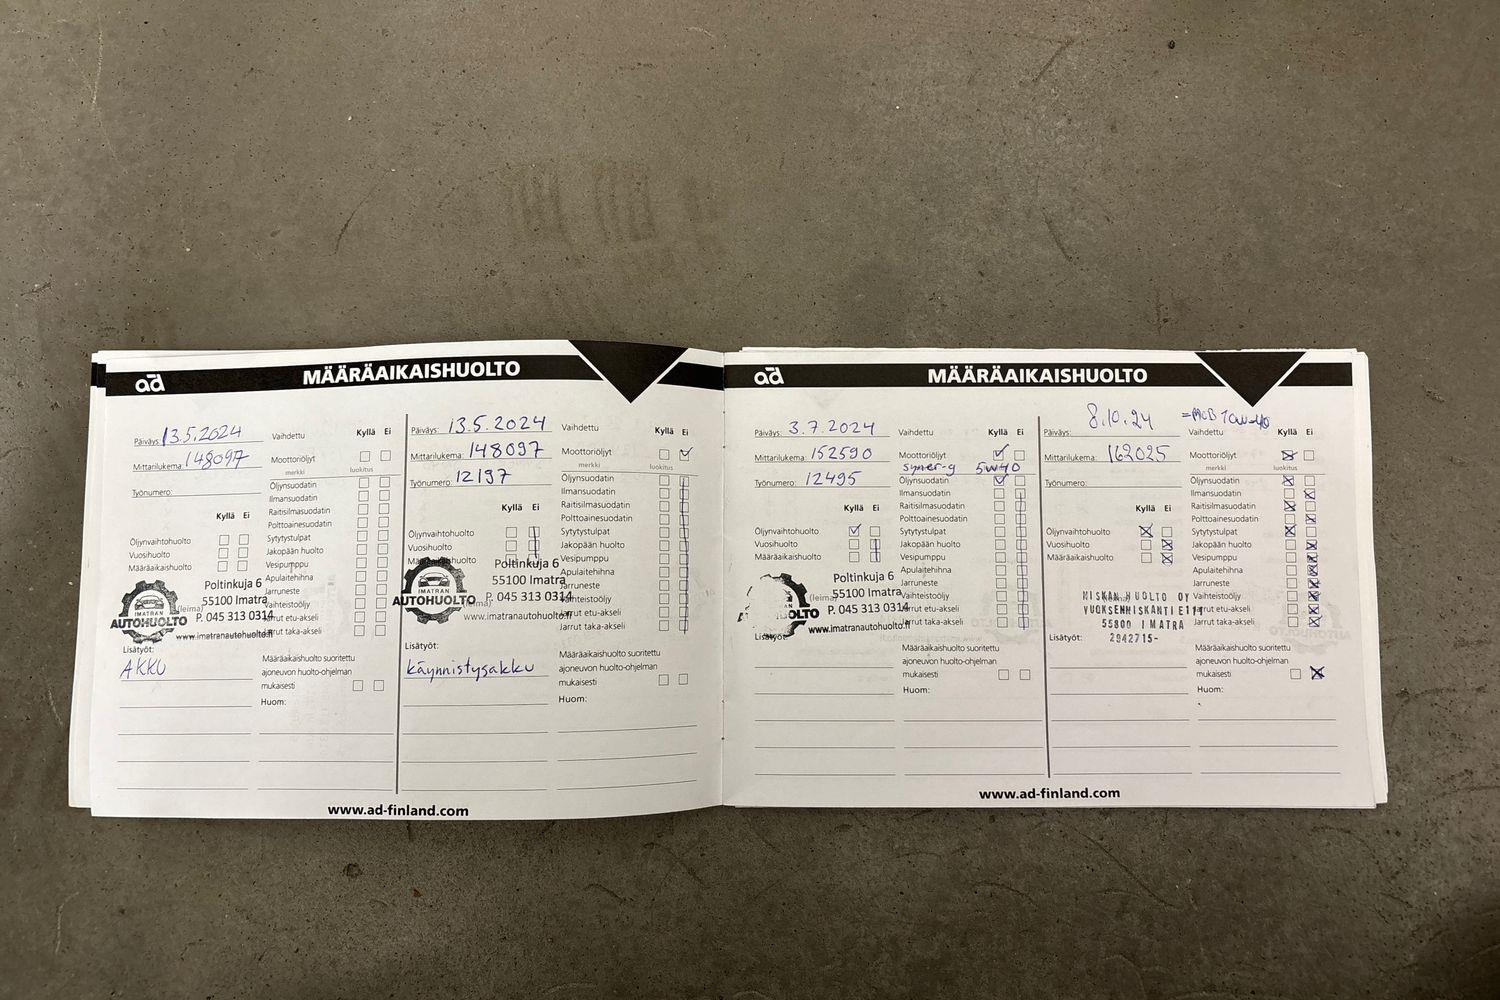 ad MÄÄRÄAIKAISHUOLTO
Päiväys: 13.5.2024
Mittarilukema: 148097
Työnumero:
Kyllä Ei
Öljynvaihtohuolto
Vuosihuolto
Määräaikaishuolto
IMATRAN
AUTOHUOLTO
Poltinkuja 6
55100 Imatra
(leima)
P. 045 313 0314
www.imatranautohuolto.fi
Lisätyöt:
AKKU
Vaihdettu Kyllä Ei
Moottoriöljyt
merkki luokitus
Öljynsuodatin
Ilmansuodatin
Raitisilmasuodatin
Polttoainesuodatin
Sytytystulpat
Jakopään huolto
Vesipumppu
Apulaitehihna
Jarruneste
Vaihteistoöljy
Jarrut etu-akseli
Jarrut taka-akseli
Määräaikaishuolto suoritettu
ajoneuvon huolto-ohjelman
mukaisesti
Huom:
Päiväys: 13.5.2024
Mittarilukema: 148097
Työnumero: 12197
Kyllä Ei
Öljynvaihtohuolto
Vuosihuolto
Määräaikaishuolto
IMATRAN
AUTOHUOLTO
Poltinkuja 6
55100 Imatra
(leima)
P. 045 313 0314
www.imatranautohuolto.fi
Lisätyöt:
käynnistysakku
Vaihdettu Kyllä Ei
Moottoriöljyt
merkki luokitus
Öljynsuodatin
Ilmansuodatin
Raitisilmasuodatin
Polttoainesuodatin
Sytytystulpat
Jakopään huolto
Vesipumppu
Apulaitehihna
Jarruneste
Vaihteistoöljy
Jarrut etu-akseli
Jarrut taka-akseli
Määräaikaishuolto suoritettu
ajoneuvon huolto-ohjelman
mukaisesti
Huom:
www.ad-finland.com
ad MÄÄRÄAIKAISHUOLTO
Päiväys: 3.7.2024
Mittarilukema: 152590
Työnumero: 12495
Kyllä Ei
Öljynvaihtohuolto
Vuosihuolto
Määräaikaishuolto
Poltinkuja 6
55100 Imatra
(leima)
P. 045 313 0314
www.imatranautohuolto.fi
Lisätyöt:
Vaihdettu Kyllä Ei
Moottoriöljyt
syner-g 5w40
Öljynsuodatin
Ilmansuodatin
Raitisilmasuodatin
Polttoainesuodatin
Sytytystulpat
Jakopään huolto
Vesipumppu
Apulaitehihna
Jarruneste
Vaihteistoöljy
Jarrut etu-akseli
Jarrut taka-akseli
Määräaikaishuolto suoritettu
ajoneuvon huolto-ohjelman
mukaisesti
Huom:
Päiväys: 8.10.24
Mittarilukema: 162025
Työnumero:
Kyllä Ei
Öljynvaihtohuolto
Vuosihuolto
Määräaikaishuolto
NISKAN HUOLTO OY
VUOKSENNISKANTIE 111
55800 IMATRA
2942715-
Lisätyöt:
Vaihdettu Kyllä Ei
Moottoriöljyt
merkki luokitus
Öljynsuodatin
Ilmansuodatin
Raitisilmasuodatin
Polttoainesuodatin
Sytytystulpat
Jakopään huolto
Vesipumppu
Apulaitehihna
Jarruneste
Vaihteistoöljy
Jarrut etu-akseli
Jarrut taka-akseli
Määräaikaishuolto suoritettu
ajoneuvon huolto-ohjelman
mukaisesti
Huom:
www.ad-finland.com